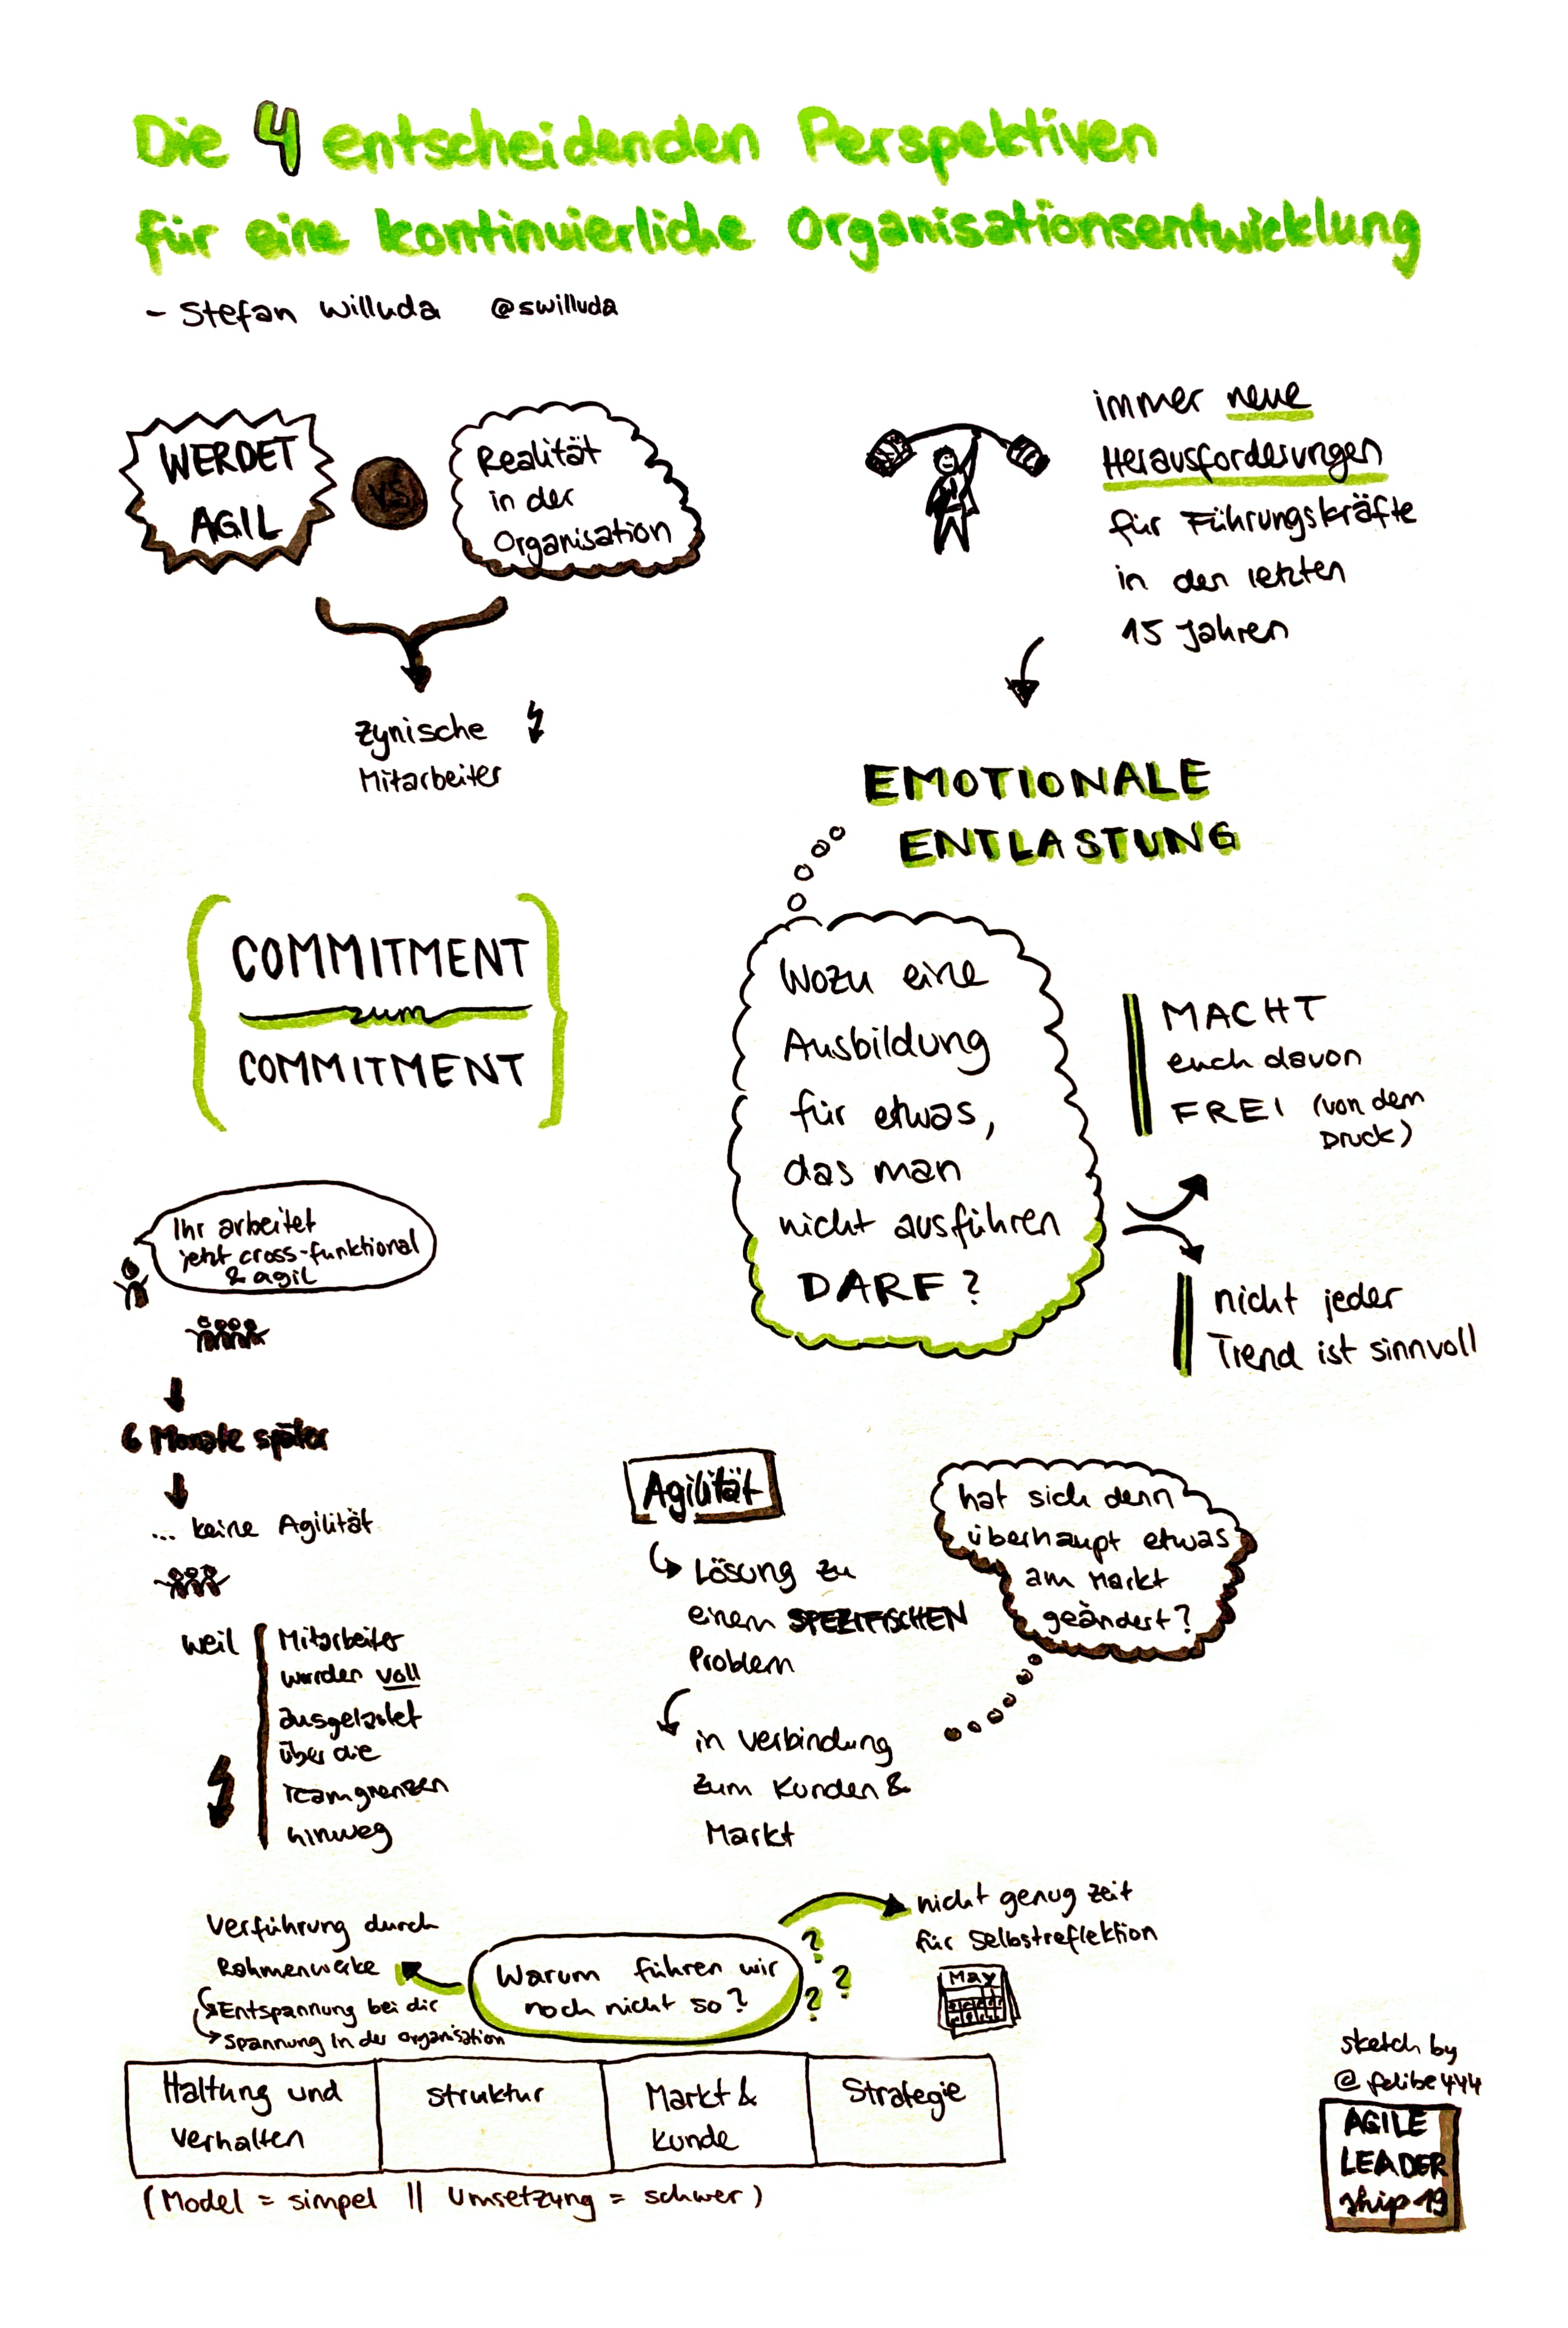 Die 4 entscheidenden Perspektiven
für eine kontinuierliche Organisationsentwicklung
- Stefan Willuda @swilluda
WERDET
AGIL
VS
Realität
in der
Organisation
zynische
Mitarbeiter
immer neue
Herausforderungen
für Führungskräfte
in den letzten
15 Jahren
EMOTIONALE
ENTLASTUNG
COMMITMENT
zum
COMMITMENT
Wozu eine
Ausbildung
für etwas,
das man
nicht ausführen
DARF?
MACHT
euch davon
FREI (von dem
Druck)
nicht jeder
Trend ist sinnvoll
Ihr arbeitet
jetzt cross-funktional
& agil
6 Monate später
... keine Agilität
weil
Mitarbeiter
werden voll
ausgelastet
über die
Teamgrenzen
hinweg
Agilität
Lösung zu
einem SPEZIFISCHEN
Problem
in Verbindung
zum Kunden &
Markt
hat sich denn
überhaupt etwas
am Markt
geändert?
Verführung durch
Rahmenwerke
Entspannung bei dir
Spannung in der Organisation
Warum führen wir
noch nicht so?
? ? ?
nicht genug Zeit
für Selbstreflektion
May
Haltung und
Verhalten
Struktur
Markt &
Kunde
Strategie
(Model = simpel || Umsetzung = schwer)
sketch by
@felibe444
AGILE
LEADER
ship 19